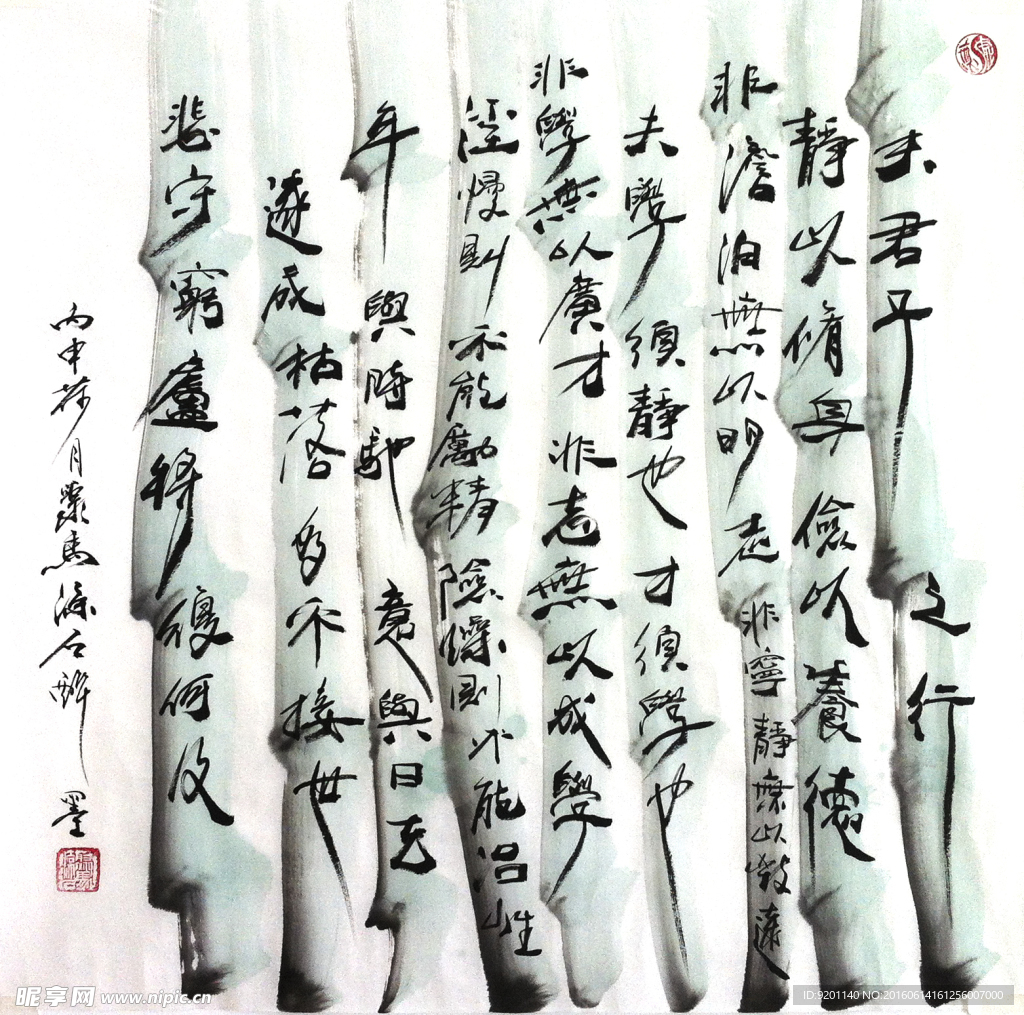 夫君子之行
靜以脩身儉以養德
非澹泊無以明志非寧靜無以致遠
夫學須靜也才須學也
非學無以廣才非志無以成學
淫慢則不能勵精險躁則不能治性
年與時馳意與日去
遂成枯落多不接世
悲守窮廬將復何及
丙申荷月馬石醉墨
昵享网 www.nipic.cn
ID:9201140 NO:20160614161256007000